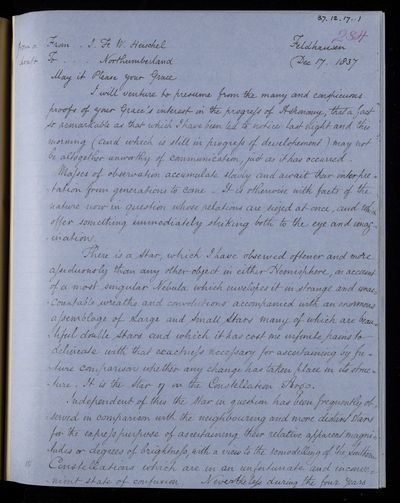 37.12.17.1
284
From a draft
From . . J. F. W. Herschel Feldhausen
To . . . Northumberland Dec 17. 1837
May it Please your Grace
I will venture to presume from the many and conspicuous
proofs of your Grace's interest in the progress of Astronomy, that a fact
so remarkable as that which I have been led to notice last night and this
morning (and which is still in progress of developement) may not
be altogether unworthy of communication, just as it has occurred.
Masses of observation accumulate slowly and await their interpre-
-tation from generations to come. It is otherwise with facts of the
nature now in question whose relations are seized at once, and
offer something immediately striking both to the eye and imag-
-ination.
There is a star, which I have observed oftener and more
assiduously than any other object in either Hemisphere, on account
of a most singular Nebula which envelopes it in strange and unac-
countable wreaths and convolutions accompanied with an enormous
assemblage of Large and Small Stars many of which are beau-
tiful double Stars and which it has cost me infinite pains to
delineate with that exactness necessary for ascertaining by fu-
-ture comparison whether any change has taken place in its struc-
-ture. It is the Star η in the Constellation Argo.
Independent of this the Star in question has been frequently ob-
served in comparison with the neighbouring and more distant Stars
for the express purpose of ascertaining their relative apparent magni-
-tudes or degrees of brightness, with a view to the remodelling of the Southern
Constellations which are in an unfortunate and inconve-
-nient state of confusion. Nevertheless during the four years